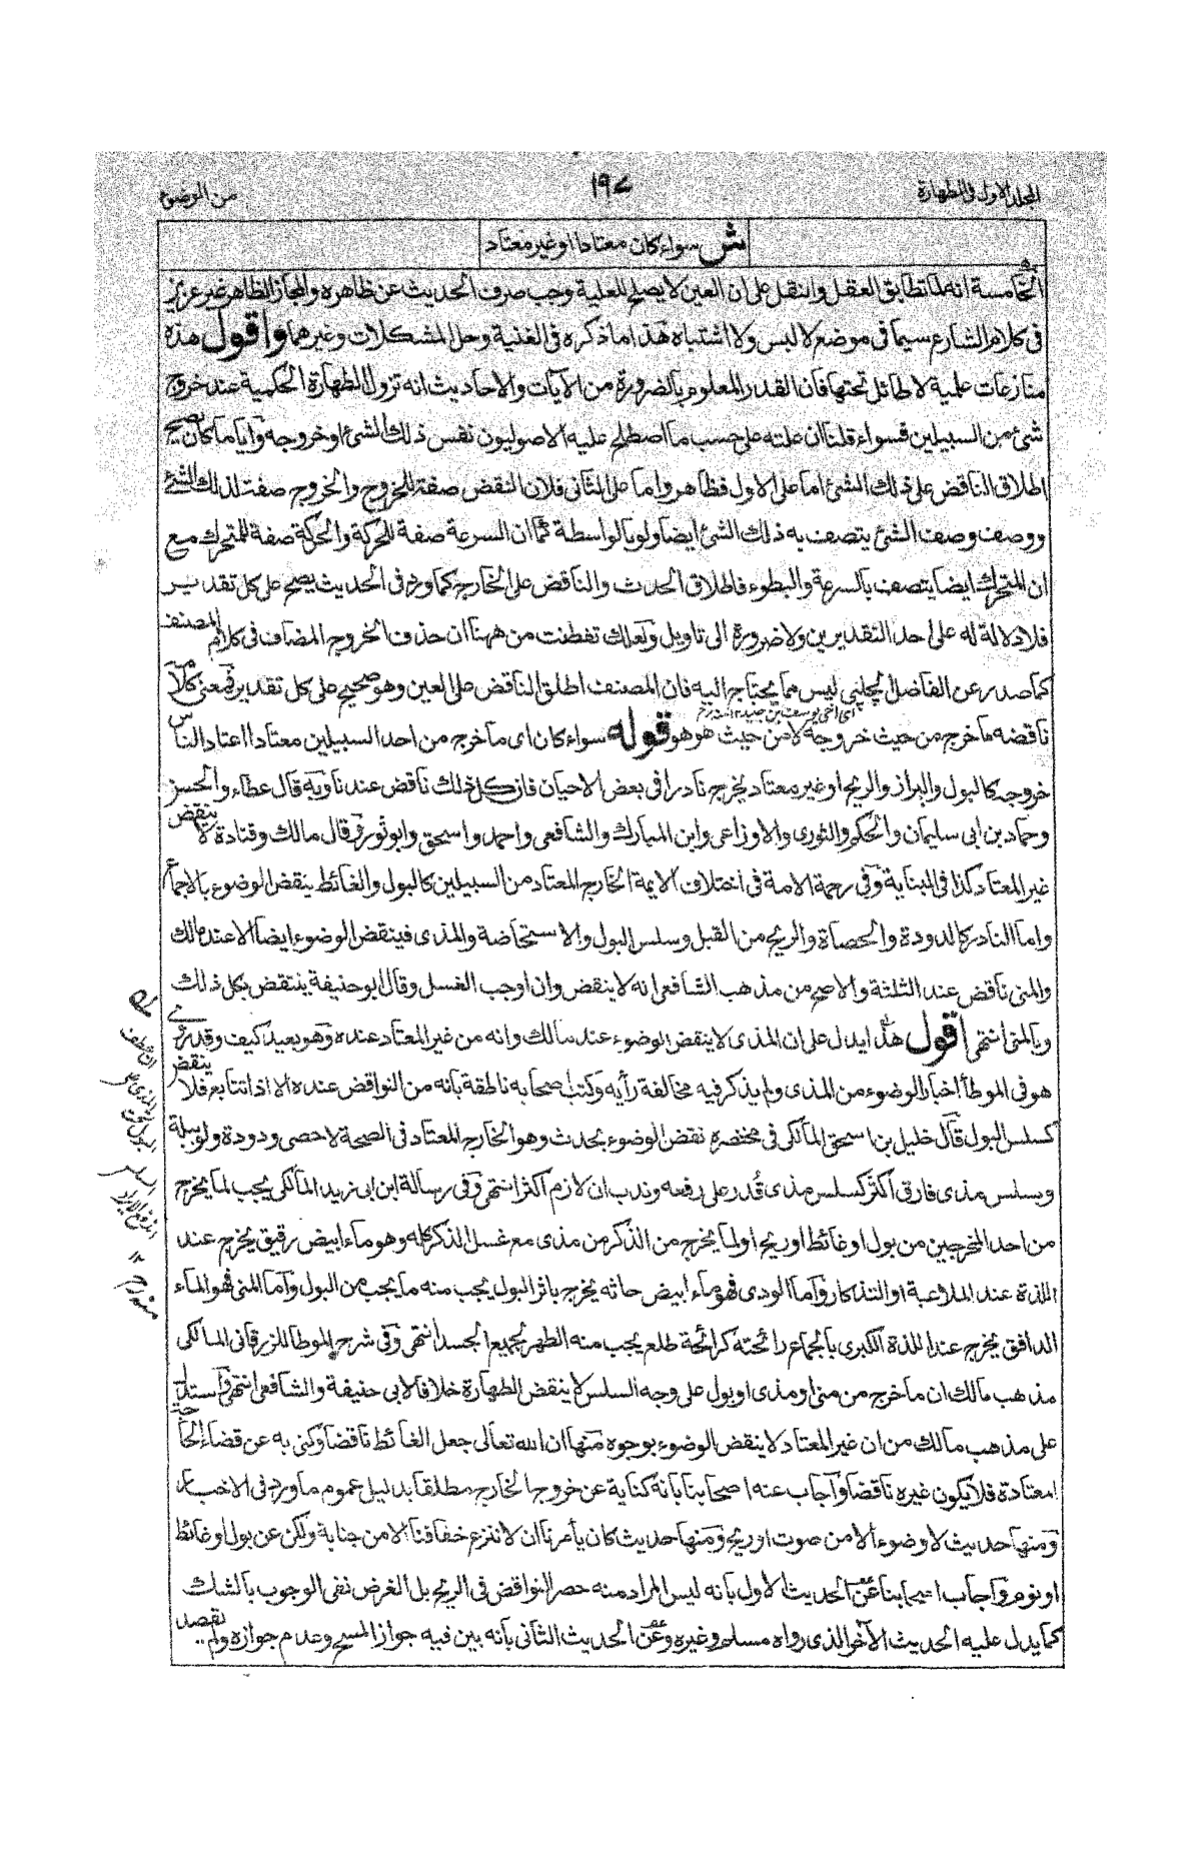 المجلد الاول فى الطهارة
١٩٧
من الوضوء
ش سواء كان معتادا او غير معتاد
الخامسة انه لما تطابق العقل والنقل على ان العين لا يصلح للعلية وجب صرف الحديث عن ظاهره والمجاز الظاهر غير عزيز
فى كلام الشارع سيما فى موضع لا لبس ولا اشتباه هذا ما ذكره فى الغنية وحل المشكلات وغيرهما واقول هذه
منازعات علمية لا طائل تحتها فان القدر المعلوم بالضرورة من الآيات والاحاديث انه تزول الطهارة الحكمية عند خروج
شئ من السبيلين فسواء قلنا ان علته على حسب ما اصطلح عليه الاصوليون نفس ذلك الشئ او خروجه وايا ما كان يصح
اطلاق الناقض على ذلك الشئ اما على الاول فظاهر واما على الثانى فلان النقض صفة للخروج والخروج صفة لذلك الشئ
ووصف وصف الشئ يتصف به ذلك الشئ ايضا ولو بالواسطة كما ان السرعة صفة للحركة والحركة صفة للمتحرك مع
ان المتحرك ايضا يتصف بالسرعة والبطوء فاطلاق الحدث والناقض على الخارج كما ورد فى الحديث يصح على كل تقدير
فلا دلالة له على احد التقديرين ولا ضرورة الى تاويل ولعلك تفطنت من ههنا ان حذف الخروج المضاف فى كلام المصنف
كما صدر عن الفاضل الچلپى ليس مما يحتاج اليه فان المصنف اطلق الناقض على العين وهو صحيح على كل تقدير فمعنى كلامه
اى اخى يوسف بن جنيد
ناقضه ما خرج من حيث خروجه لا من حيث هو هو قوله سواء كان اى ما خرج من احد السبيلين معتادا اعتاد الناس
خروجه كالبول والبراز والريح او غير معتاد يخرج نادرا فى بعض الاحيان فان كل ذلك ناقض عندنا وبه قال عطاء والحسن
وحماد بن ابى سليمان والحكم والثورى والاوزاعى وابن المبارك والشافعى واحمد واسحق وابو ثور وقال مالك وقتادة لا ينقض
غير المعتاد كذا فى البناية وفى رحمة الامة فى اختلاف الايمة الخارج المعتاد من السبيلين كالبول والغائط ينقض الوضوء بالاجماع
واما النادر كالدودة والحصاة والريح من القبل وسلس البول والاستحاضة والمذى فينقض الوضوء ايضا الا عند مالك
والمنى ناقض عند الثلثة والاصح من مذهب الشافعى انه لا ينقض وان اوجب الغسل وقال ابو حنيفة ينتقض بكل ذلك
وبالمنى انتهى اقول هذا يدل على ان المذى لا ينقض الوضوء عند مالك وانه من غير المعتاد عنده وهو بعيد كيف وقد روى
هو فى الموطأ اخبار الوضوء من المذى ولم يذكر فيه مخالفة رأيه وكتب اصحابه ناطقة بانه من النواقض عنده الا اذا تتابع فلا ينقض
كسلس البول قال خليل بن اسحق المالكى فى مختصره نقض الوضوء بحدث وهو الخارج المعتاد فى الصحة لا حصى ودودة ولو ببلة
وبسلس مذى فارق اكثر كسلس مذى قُدر على رفعه وندب ان لازم اكثر انتهى وفى رسالة ابن ابى زيد المالكى يجب لما يخرج
من احد المخرجين من بول او غائط او ريح او لما يخرج من الذكر من مذى مع غسل الذكر كله وهو ماء ابيض رقيق يخرج عند
اللذة عند الملاعبة او التذكار واما الودى فهو ماء ابيض خاثه يخرج باثر البول يجب منه ما يجب من البول واما المنى فهو الماء
الدافق يخرج عند اللذة الكبرى بالجماع رائحته كرائحة طلع يجب منه الطهر لجميع الجسد انتهى وفى شرح الموطا للزرقانى المالكى
مذهب مالك ان ما خرج من منى او مذى او بول على وجه السلس لا ينقض الطهارة خلافا لابى حنيفة والشافعى انتهى واستدل
على مذهب مالك من ان غير المعتاد لا ينقض الوضوء بوجوه منها ان الله تعالى جعل الغائط ناقضا وكنى به عن قضاء الحاجة
المعتادة فلا يكون غيره ناقضا واجاب عنه اصحابنا بانه كناية عن خروج الخارج مطلقا بدليل عموم ما ورد فى الاخبار
ومنها حديث لا وضوء الا من صوت او ريح ومنها حديث كان يأمرنا ان لا ننزع خفافنا الا من جنابة ولكن عن بول او غائط
او نوم واجاب اصحابنا عن الحديث الاول بانه ليس المراد منه حصر النواقض فى الريح بل الغرض نفى الوجوب بالشك
كما يدل عليه الحديث الآخر الذى رواه مسلم وغيره وعن الحديث الثانى بانه بين فيه جواز المسح وعدم جوازه ولم يقصد